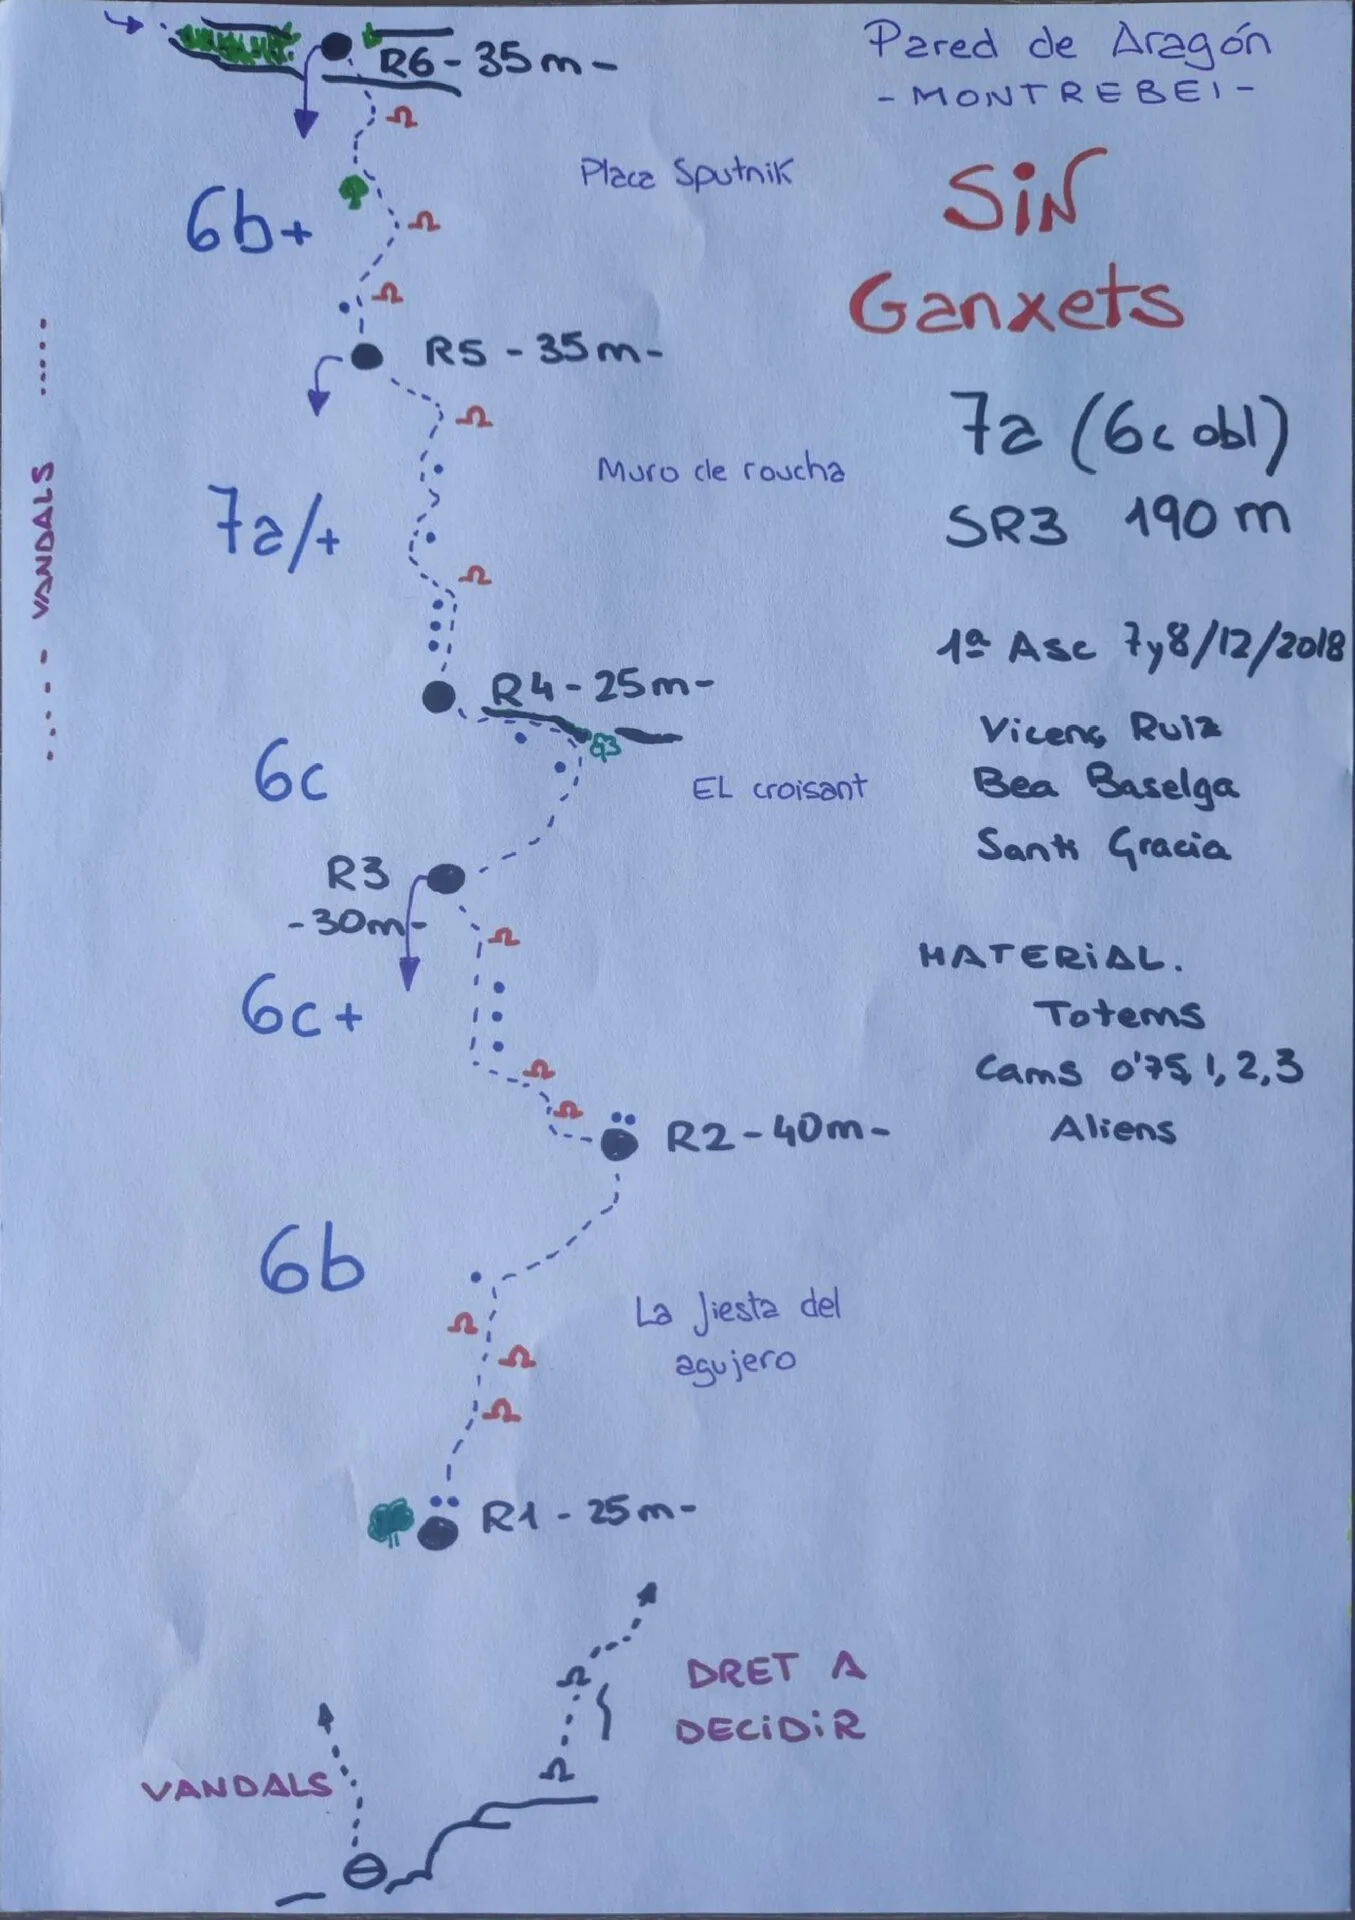 Pared de Aragón
- MONTREBEI -
SiN
Ganxets
7a (6c obl)
SR3 190 m
1ª Asc 7y8/12/2018
Vicenç Ruiz
Bea Baselga
Santi Gracia
MATERiAL.
Totems
Cams 0'75, 1, 2, 3
Aliens
R6 - 35m -
Placa Sputnik
6b+
R5 - 35m -
Muro de roucha
7a/+
..... VANDALS .....
R4 - 25m -
6c
EL croisant
R3
- 30m -
6c+
R2 - 40m -
6b
La fiesta del
agujero
R1 - 25m -
DRET A
DECiDiR
VANDALS